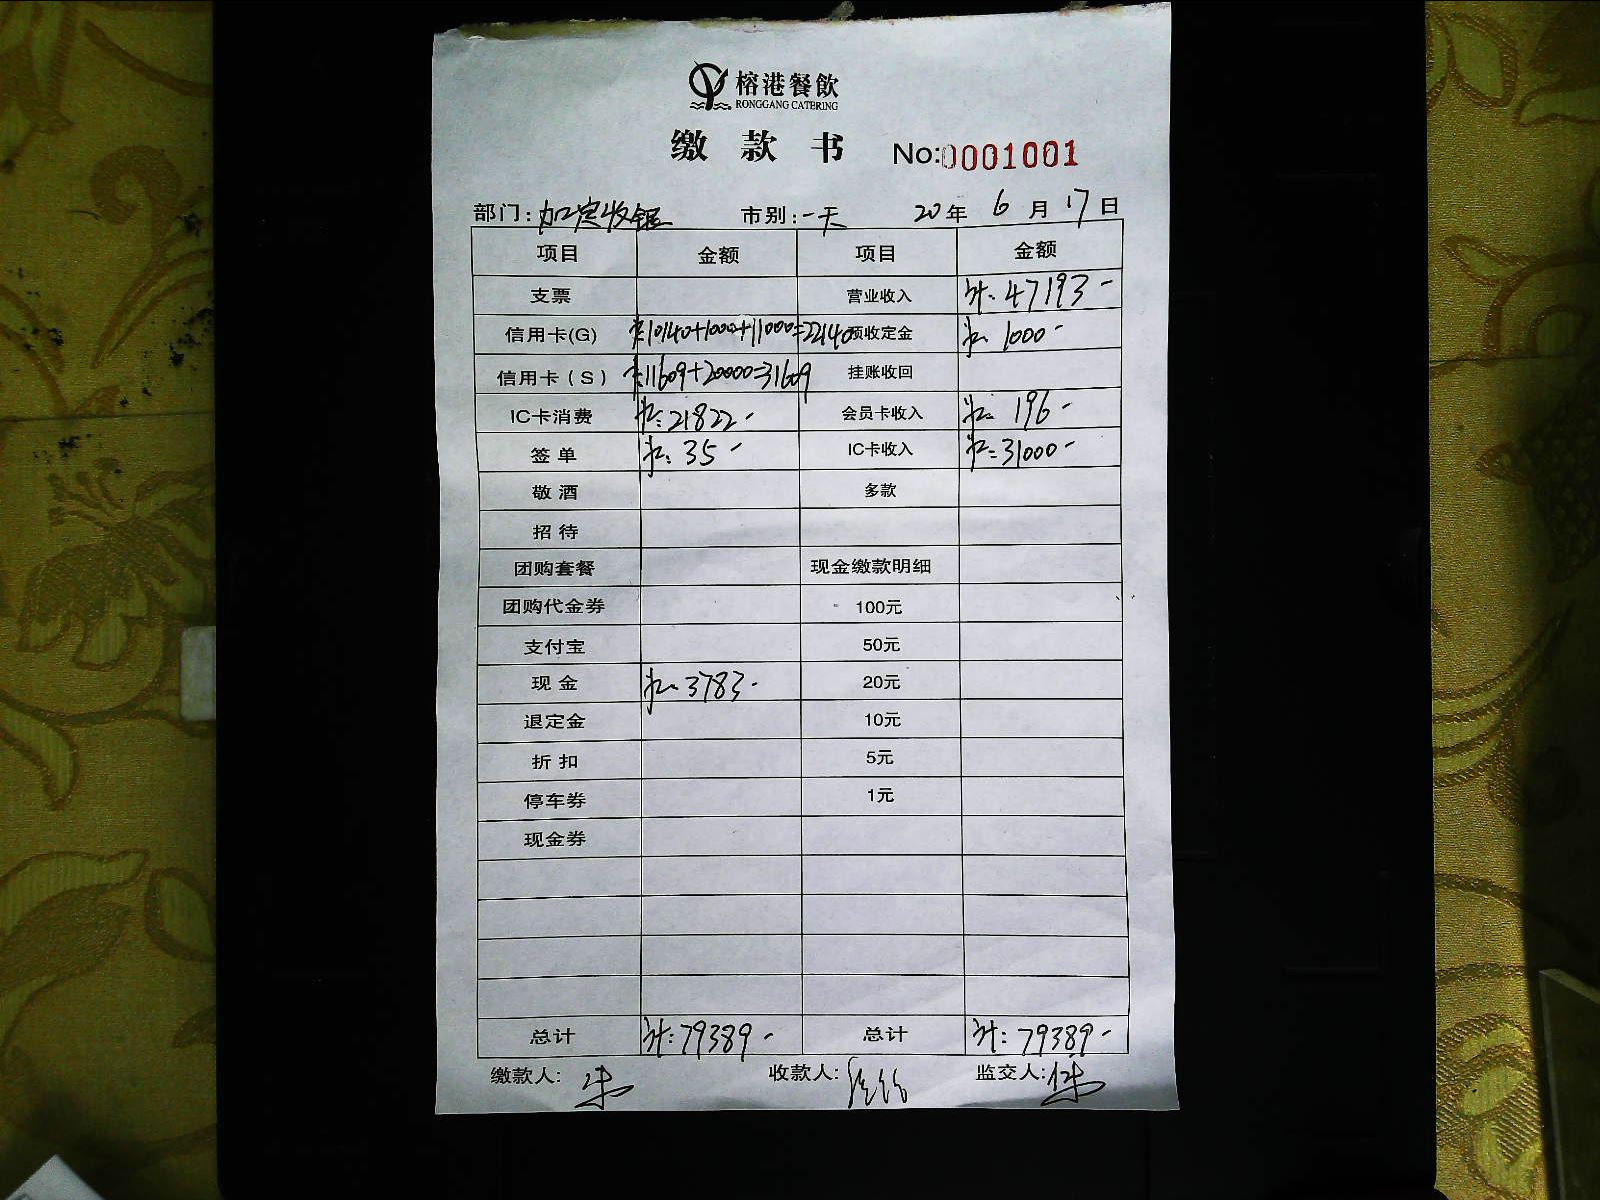 榕港餐飲
RONGGANG CATERING
缴款书 No:0001001
部门: 加定收银 市别: 一天 20年 6月 17日
项目 金额 项目 金额
支票 营业收入 计: 47193-
信用卡(G) 10140+1000+11000=22140 预收定金 1000-
信用卡(S) 11609+20000=31609 挂账收回
IC卡消费 21822- 会员卡收入 196-
签单 35- IC卡收入 31000-
敬酒 多款
招待
团购套餐 现金缴款明细
团购代金券 100元
支付宝 50元
现金 3783- 20元
退定金 10元
折扣 5元
停车券 1元
现金券
总计 计: 79389- 总计 计: 79389-
缴款人: 收款人: 监交人: